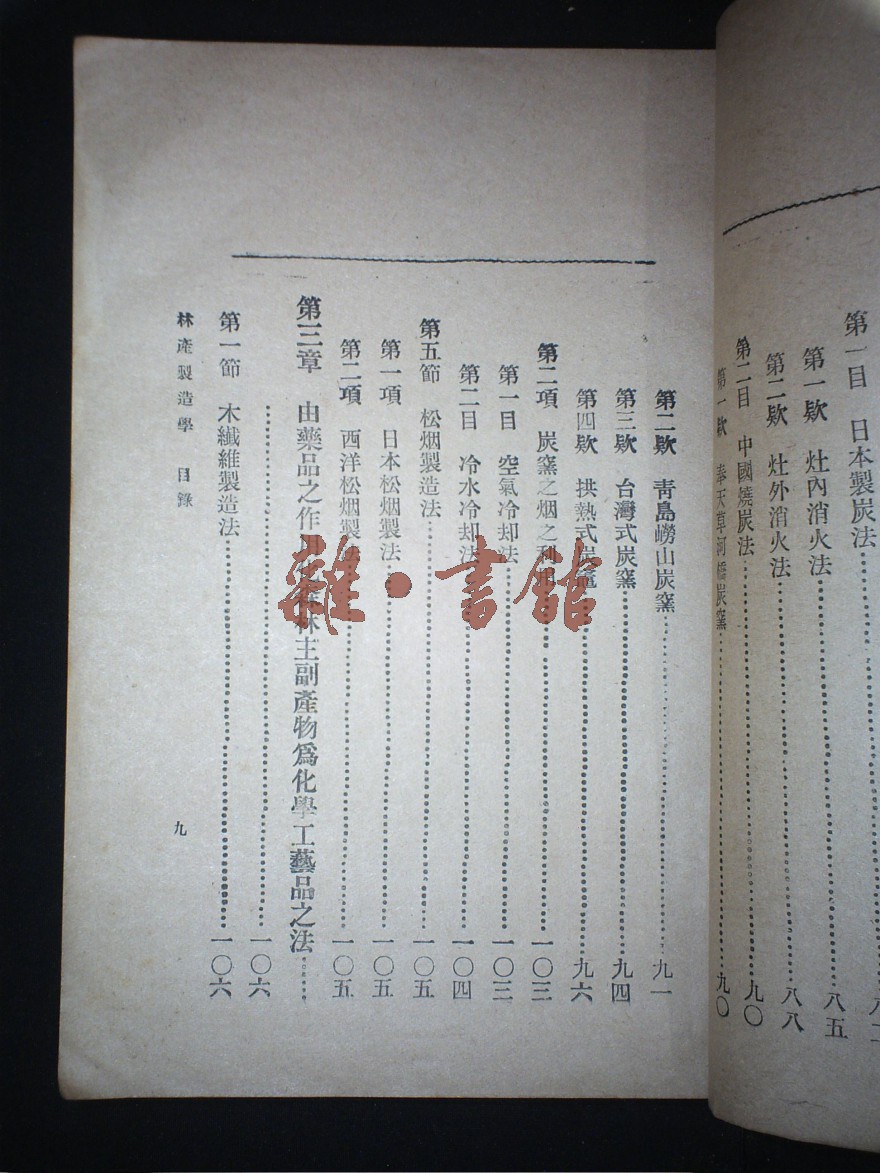 第一目 日本製炭法
第一欵 灶內消火法……八五
第二欵 灶外消火法……八八
第二目 中國燒炭法……九〇
第一欵 奉天草河橋炭窯……九〇
第二欵 靑島嶗山炭窯……九一
第三欵 台灣式炭窯……九四
第四欵 拱熱式炭窯……九六
第二項 炭窯之烟之利用……一〇三
第一目 空氣冷却法……一〇三
第二目 冷水冷却法……一〇四
第五節 松烟製造法……一〇五
第一項 日本松烟製法……一〇五
第二項 西洋松烟製法……一〇五
第三章 由藥品之作 林主副產物爲化學工藝品之法……
……一〇六
第一節 木纖維製造法……一〇六
林產製造學 目錄 九
雜·書館